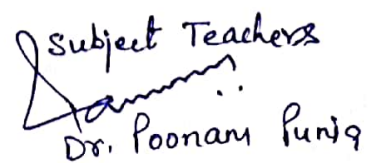 Subject Teachers
Dr. Poonam Punia